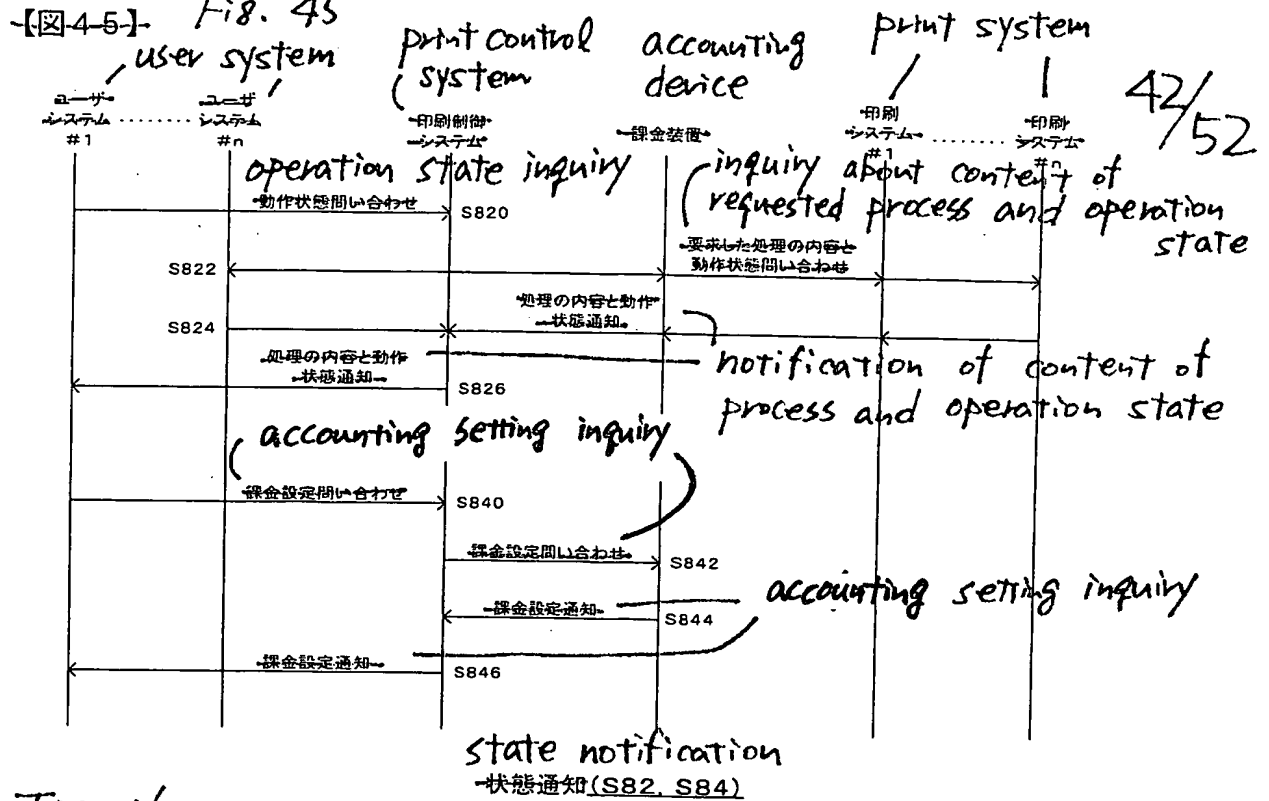 【図45】 Fig. 45
user system
print control
system
accounting
device
print system
42/52
ユーザ
システム
#1
ユーザ
システム
#n
印刷制御
システム
課金装置
印刷
システム
#1
印刷
システム
#n
operation state inquiry
inquiry about content of
requested process and operation
state
動作状態問い合わせ
S820
要求した処理の内容と
動作状態問い合わせ
S822
処理の内容と動作
状態通知
S824
処理の内容と動作
状態通知
S826
notification of content of
process and operation state
accounting setting inquiry
課金設定問い合わせ
S840
課金設定問い合わせ
S842
accounting setting inquiry
課金設定通知
S844
課金設定通知
S846
state notification
状態通知(S82, S84)